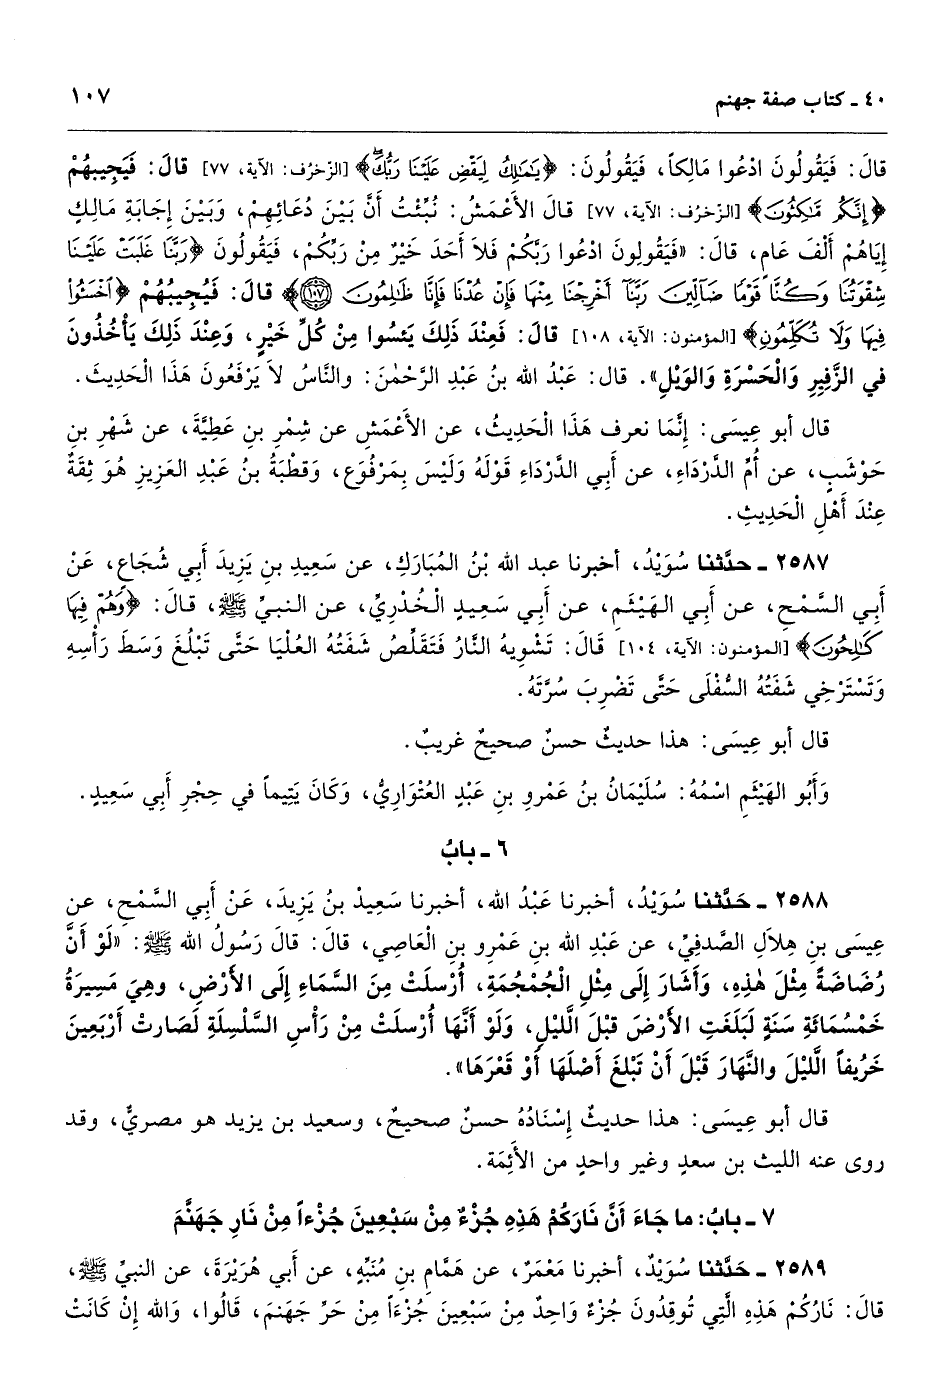 ٤٠ ـ كتاب صفة جهنم
١٠٧
قالَ: فَيَقُولُونَ ادْعُوا مَالِكاً، فَيَقُولُونَ: ﴿يَٰمَٰلِكُ لِيَقْضِ عَلَيْنَا رَبُّكَۖ﴾ [الزّخرُف: الآية، ٧٧] قالَ: فَيُجِيبهُمْ
﴿إِنَّكُم مَّٰكِثُونَ﴾ [الزّخرُف: الآية، ٧٧] قالَ الأَعْمَشُ: نُبِّئْتُ أَنَّ بَيْنَ دُعَائِهِمْ، وَبَيْنَ إجَابَةِ مَالِكٍ
إِيَاهُمْ أَلْفَ عَامٍ، قالَ: «فَيَقُولِونَ ادْعُوا رَبَّكُمْ فَلاَ أَحَد خَيْرٌ مِنْ رَبِّكُمْ، فَيَقُولُونَ ﴿رَبَّنَا غَلَبَتْ عَلَيْنَا
شِقْوَتُنَا وَكُنَّا قَوْمًا ضَآلِّينَ رَبَّنَآ أَخْرِجْنَا مِنْهَا فَإِنْ عُدْنَا فَإِنَّا ظَٰلِمُونَ ١٠٧﴾ قالَ: فَيُجِيبُهُمْ ﴿ٱخْسَـُٔوا۟
فِيهَا وَلَا تُكَلِّمُونِ﴾ [المؤمنون: الآية، ١٠٨] قالَ: فَعِنْدَ ذَلِكَ يَئسُوا مِنْ كُلِّ خَيْرٍ، وَعِنْدَ ذَلِكَ يَأْخُذُونَ
في الزَّفِيرِ وَالْحَسْرَةِ وَالوَيْلِ». قال: عَبْدُ الله بنُ عَبْدِ الرَّحْمٰنَ: والنَّاسُ لاَ يَرْفَعُونَ هَذَا الْحَدِيثَ.
قال أبو عِيسَى: إنَّمَا نعرف هَذَا الْحَدِيثُ، عن الأَعْمَش عن شِمْرِ بنِ عَطِيَّةَ، عن شَهْرِ بنِ
حَوْشَبٍ، عن أُمِّ الدَّرْدَاءِ، عن أَبي الدَّرْدَاءِ قَوْلَهُ وَلَيْسَ بِمَرْفُوَعٍ، وَقطْبَةُ بنُ عَبْدِ العَزِيزِ هُوَ ثِقَةٌ
عِنْدَ أَهْلِ الْحَدِيثِ.
٢٥٨٧ ـ حدَّثنا سُوَيْدُ، أخبرنا عبد الله بْنُ المُبَارَكِ، عن سَعِيدِ بنِ يَزِيدَ أَبي شُجَاعٍ، عَنْ
أَبي السَّمْحِ، عن أَبي الهَيْثَمِ، عن أَبي سَعِيدٍ الْخُدْرِيِّ، عن النبيِّ ﷺ، قالَ: ﴿وَهُمْ فِيهَا
كَٰلِحُونَ﴾ [المؤمنون: الآية، ١٠٤] قَالَ: تَشْوِيهُ النَّارُ فَتَقَلَّصُ شَفَتُهُ العُلْيَا حَتَّى تَبْلُغَ وَسَطَ رَأْسِهِ
وَتَسْتَرْخِي شَفَتُهُ السُّفْلَى حَتَّى تَضْرِبَ سُرَّتَهُ.
قال أبو عِيسَى: هذا حديثٌ حسنٌ صحيحٌ غريبٌ.
وَأَبُو الهَيْثَمِ اسْمُهُ: سُلَيْمَانُ بنُ عَمْرِو بنِ عَبْدٍ العُتْوَارِيُّ، وَكَانَ يَتِيماً في حِجْرِ أَبي سَعِيدٍ.
٦ ـ بابُ
٢٥٨٨ ـ حَدَّثنا سُوَيْدُ، أخبرنا عَبْدُ الله، أخبرنا سَعِيدْ بنُ يَزِيدَ، عَنْ أَبي السَّمْحِ، عن
عِيسَى بنِ هِلاَلٍ الصَّدفِيِّ، عن عَبْدِ الله بنِ عَمْرِو بنِ الْعَاصِي، قالَ: قالَ رَسُولُ الله ﷺ: «لَوْ أَنَّ
رُصَاصَةً مِثْلَ هٰذِهِ، وَأَشَارَ إِلَى مِثْلِ الْجُمْجُمَةِ، أُرْسلَتْ مِنَ السَّمَاءِ إِلَى الأَرْضِ، وهِيَ مَسِيرَةُ
خَمْسُمَائَةِ سَنَةٍ لَبَلَغَتِ الأَرْضَ قَبْلَ الَّليْلِ، وَلَوْ أنَّهَا أُرْسلَتْ مِنْ رَأْسِ السَّلْسِلَةِ لَصَارتْ أَرْبَعِينَ
خَرُيفاً الَّليْلَ والنَّهَارَ قَبْلَ أَنْ تَبْلغَ أَصْلَهَا أَوْ قَعْرَهَا».
قال أبو عِيسَى: هذا حديثٌ إِسْنَادُهُ حسنٌ صحيحٌ، وسعيد بن يزيد هو مصريٌّ، وقد
روى عنه الليث بن سعدٍ وغير واحدٍ من الأَئِمَة.
٧ ـ بابُ: ما جَاءَ أَنَّ نَارَكُمْ هَذِهِ جُزْءٌ مِنْ سَبْعِينَ جُزْءاً مِنْ نَارِ جَهَنَّمَ
٢٥٨٩ ـ حَدَّثنا سُوَيْدٌ، أخبرنا مَعْمَرٌ، عن هَمَّامِ بنِ مُنَبِّهٍ، عن أَبي هُرَيْرَةَ، عن النبيِّ ﷺ،
قالَ: نَارُكُمْ هَذِهِ الَّتِي تُوقِدُونَ جُزْءٌ وَاحِدٌ مِنْ سَبْعِينَ جُزْءَاً مِنْ حَرِّ جَهَنمَ، قَالُوا، وَالله إنْ كَانَتْ